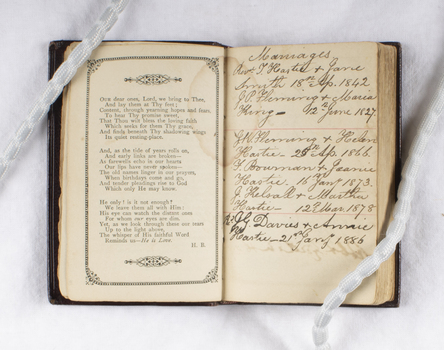 Our dear ones, Lord, we bring to Thee,
And lay them at Thy feet;
Content, through yearning hopes and fears,
To hear Thy promise sweet,
That Thou wilt bless the loving faith
Which seeks for them Thy grace,
And finds beneath Thy shadowing wings
Its quiet resting-place.
And, as the tide of years rolls on,
And early links are broken—
As farewells echo in our hearts
Our lips have never spoken—
The old names linger in our prayers,
When birthdays come and go,
And tender pleadings rise to God
Which only He may know.
He only! is it not enough?
We leave them all with Him:
His eye can watch the distant ones
For whom our eyes are dim.
Yet, as we look through these our tears
Up to the light above,
The whisper of His faithful Word
Reminds us—He is Love.
Marriages
Rev T. Hastie & Jane
Smith 18th Ap. 1842
Fleming & Maria
King — 22nd June 1827.
Fleming & Helen
Hastie — Ap. 1866.
T. Bowman & Jeanie
Hastie. 16 Jany 1873.
& Martha
Hastie — 12th Mar. 1878
J. G. Davies & Annie
Hastie — 21st Jany 1886